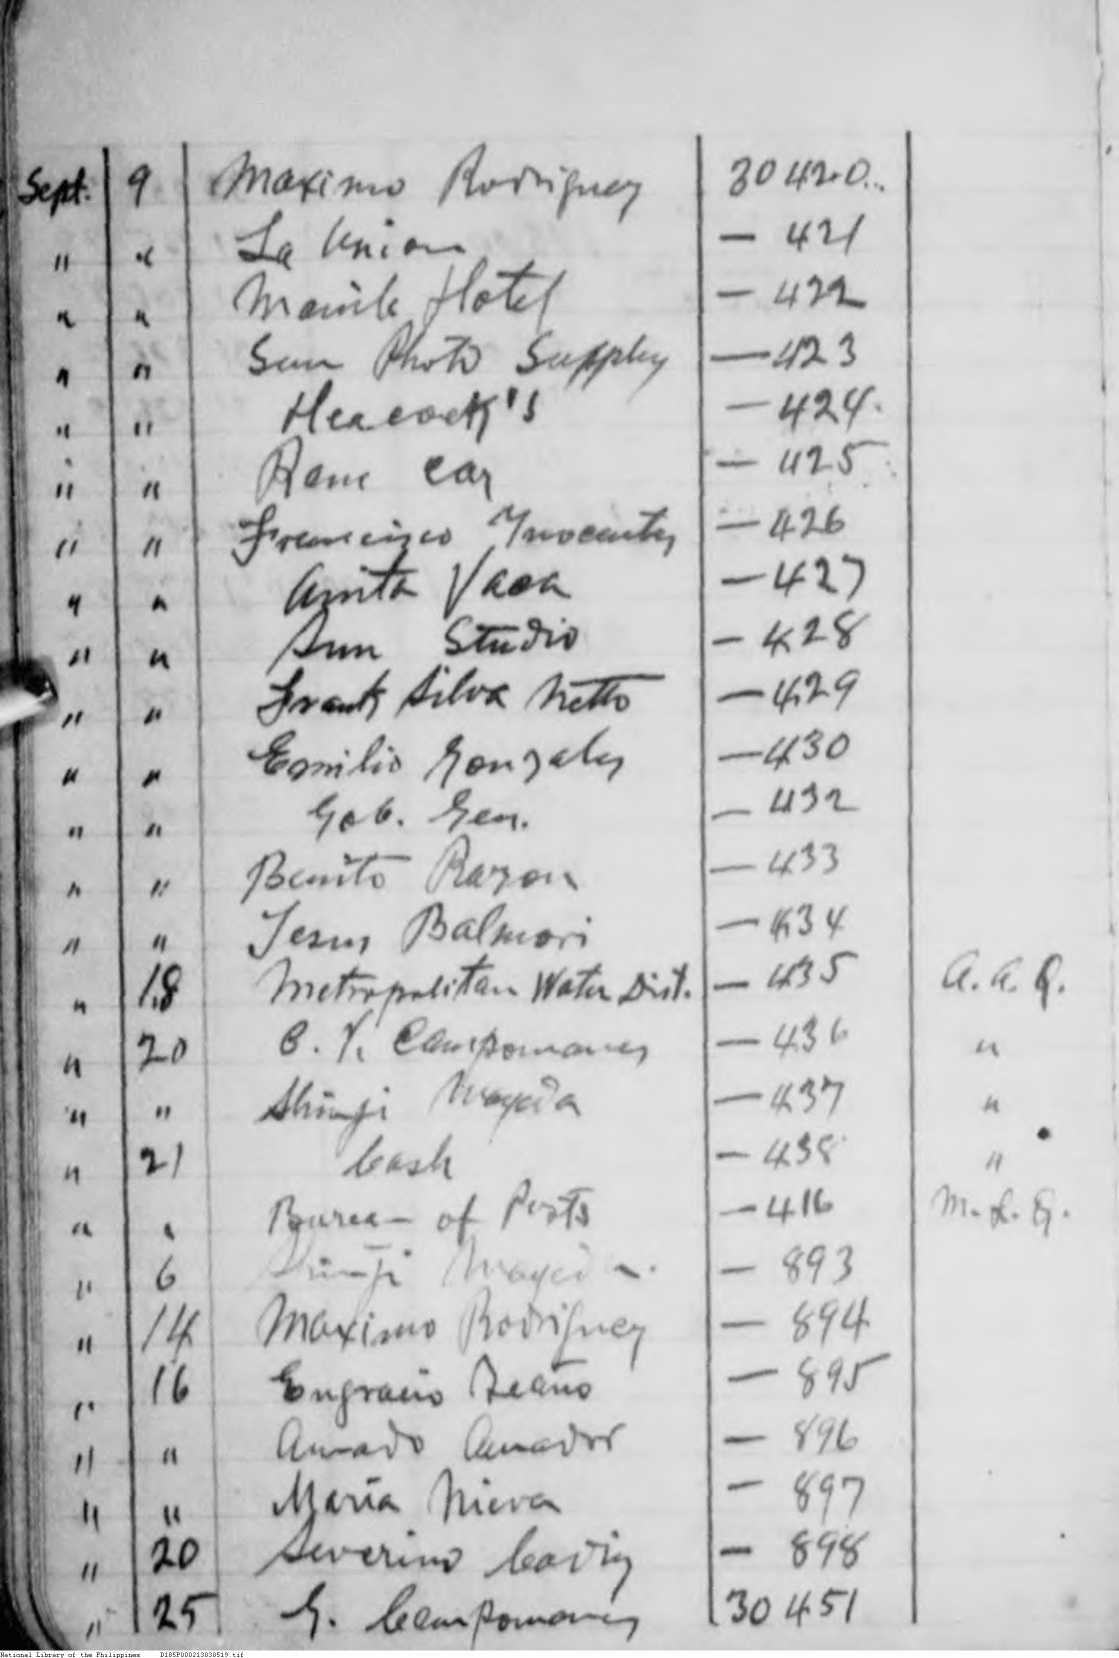 Sept. 9 Maximo Rodriguez 30420..
" " La Union — 421
" " Manila Hotel — 422
" " Sun Photo Supply — 423
" " Heacock's — 424.
" " Rent Car — 425
" " Francisco Ynocentes — 426
" " Anita Vaca — 427
" " Sun Studio — 428
" " Frank Silva Netto — 429
" " Emilio Gonzales — 430
" " Gob. Gen. — 432
" " Benito Razon — 433
" " Jesus Balmori — 434
" 18 Metropolitan Water Dist. — 435 A. A. Q.
" 20 C. V. Campomanes — 436 "
" " Shinji Mayeda — 437 "
" 21 Cash — 438 "
" " Bureau of Posts — 416 M. L. Q.
" 6 Shinji Mayeda. — 893
" 14 Maximo Rodriguez — 894
" 16 Engracio — 895
" " Amado Amador — 896
" " Maria Nieva — 897
" 20 Severino — 898
" 25 G. Campomanes 30451
National Library of the Philippines D185P000213038519.tif